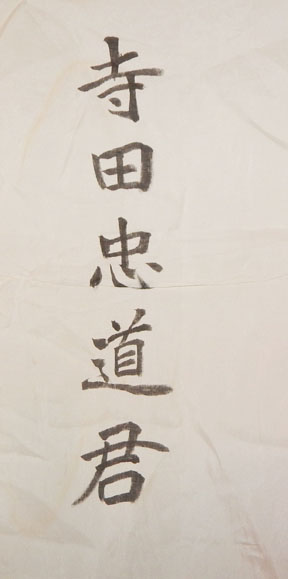 寺田忠道君